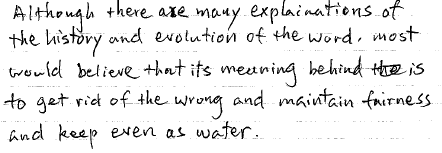 Although there are many explainations of
the history and evolution of the word, most
would believe that its meaning behind the is
to get rid of the wrong and maintain fairness
and keep even as water.